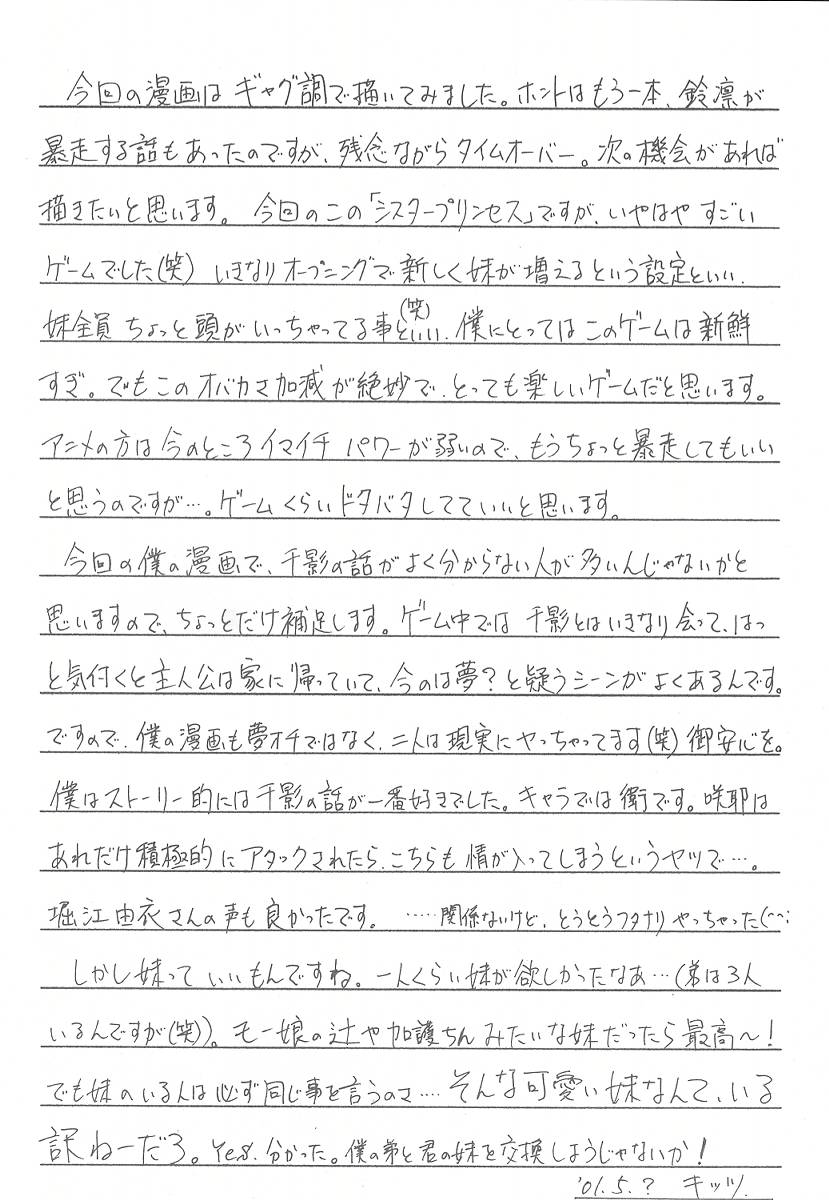 今回の漫画はギャグ調で描いてみました。ホントはもう一本、鈴凛が
暴走する話もあったのですが、残念ながらタイムオーバー。次の機会があれば
描きたいと思います。今回のこの「シスタープリンセス」ですが、いやはやすごい
ゲームでした(笑) いきなりオープニングで新しく妹が増えるという設定といい、
妹全員ちょっと頭がいっちゃってる事といい(笑)、僕にとってはこのゲームは新鮮
すぎ。でもこのオバカさ加減が絶妙で、とっても楽しいゲームだと思います。
アニメの方は今のところイマイチパワーが弱いので、もうちょっと暴走してもいい
と思うのですが…。ゲームくらいドタバタしてていいと思います。
今回の僕の漫画で、千影の話がよく分からない人が多いんじゃないかと
思いますので、ちょっとだけ補足します。ゲーム中では千影とはいきなり会って、はっ
と気付くと主人公は家に帰っていて、今のは夢?と疑うシーンがよくあるんです。
ですので、僕の漫画も夢オチではなく、二人は現実にヤっちゃってます(笑)御安心を。
僕はストーリー的には千影の話が一番好きでした。キャラでは衛です。咲耶は
あれだけ積極的にアタックされたら、こちらも情が入ってしまうというヤツで…。
堀江由衣さんの声も良かったです。……関係ないけど、とうとうフタナリやっちゃった(^^;
しかし妹っていいもんですね。一人くらい妹が欲しかったなあ…(弟は3人
いるんですが(笑))。モー娘の辻や加護ちんみたいな妹だったら最高〜!
でも妹のいる人は必ず同じ事を言うのさ…そんな可愛い妹なんて、いる
訳ねーだろ。Yes.分かった。僕の弟と君の妹を交換しようじゃないか!
'01.5.? キッツ